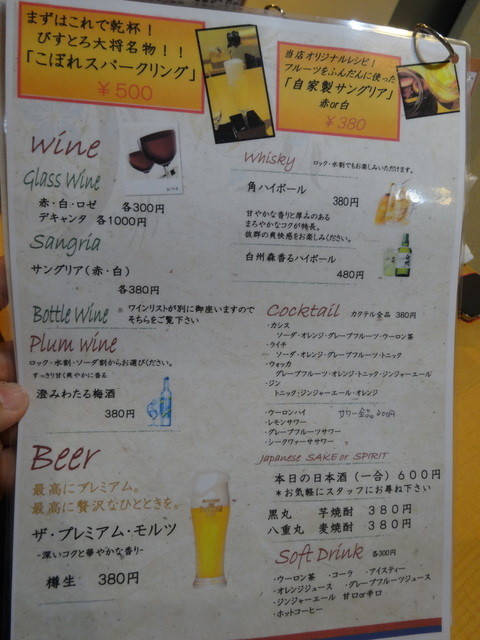 まずはこれで乾杯！
びすとろ大将名物！！
「こぼれスパークリング」
￥500
当店オリジナルレシピ！
フルーツをふんだんに使った
「自家製サングリア」
赤or白
￥380
Wine
Glass Wine
赤・白・ロゼ 各300円
デキャンタ 各1000円
Sangria
サングリア（赤・白）
各380円
Bottle Wine ※ ワインリストが別に御座いますので
そちらをご覧下さい
Plum Wine
ロック・水割・ソーダ割からお選びください。
すっきり甘く爽やかに香る
澄みわたる梅酒
380円
Beer
最高にプレミアム。
最高に贅沢なひとときを。
ザ・プレミアム・モルツ
-深いコクと華やかな香り-
樽生 380円
Whisky ロック・水割でもお楽しみいただけます。
角ハイボール 380円
甘やかな香りと厚みのある
まろやかなコクが特長。
抜群の爽快感をお楽しみください。
白州森香るハイボール
480円
Cocktail カクテル全品 380円
・カシス
ソーダ・オレンジ・グレープフルーツ・ウーロン茶
・ライチ
ソーダ・オレンジ・グレープフルーツ・トニック
・ウォッカ
グレープフルーツ・オレンジ・トニック・ジンジャーエール
・ジン
トニック・ジンジャーエール・オレンジ
・ウーロンハイ
・レモンサワー
・グレープフルーツサワー
・シークヮーサーサワー
Japanese SAKE or SPIRIT
本日の日本酒（一合）６００円
＊お気軽にスタッフにお尋ね下さい
黒丸 芋焼酎 ３８０円
八重丸 麦焼酎 ３８０円
Soft Drink 各300円
・ウーロン茶 ・コーラ ・アイスティー
・オレンジジュース ・グレープフルーツジュース
・ジンジャーエール 甘口or辛口
・ホットコーヒー